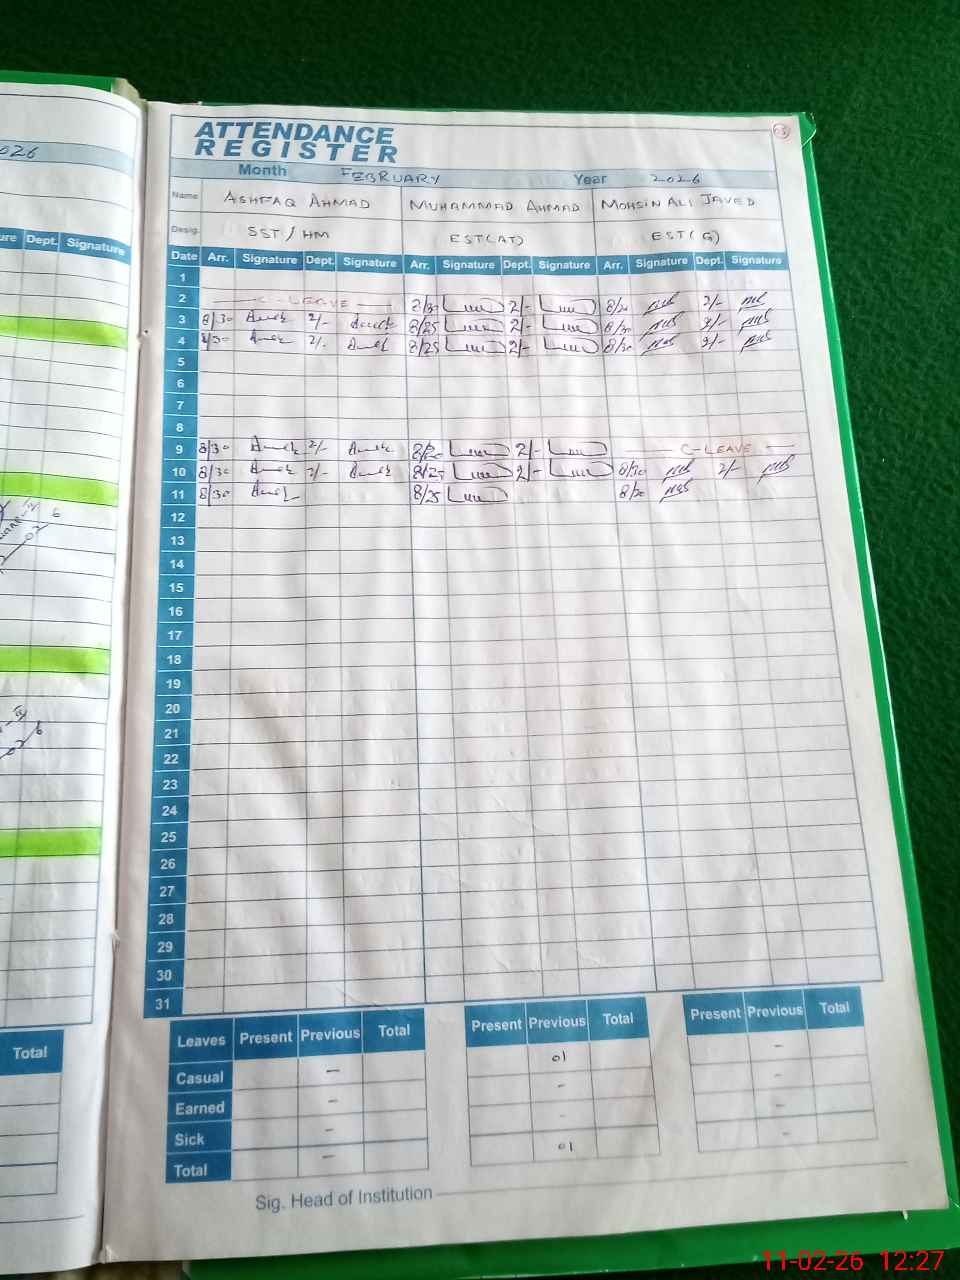 026
ure Dept. Signature
6
02
Total
03
ATTENDANCE
REGISTER
Month FEBRUARY Year 2026
Name ASHFAQ AHMAD MUHAMMAD AHMAD MOHSIN ALI JAVED
Desig. SST/HM EST(AT) EST(G)
Date Arr. Signature Dept. Signature Arr. Signature Dept. Signature Arr. Signature Dept. Signature
1
2 C-LEAVE 8/30 2/- 8/30 2/-
3 8/30 2/- 8/25 2/- 8/30 2/-
4 8/30 2/- 8/25 2/- 8/30 2/-
5
6
7
8
9 8/30 2/- 8/20 2/- C-LEAVE
10 8/30 2/- 8/25 2/- 8/30 2/-
11 8/30 8/25 8/30
12
13
14
15
16
17
18
19
20
21
22
23
24
25
26
27
28
29
30
31
Leaves Present Previous Total Present Previous Total Present Previous Total
Casual - 01 -
Earned - - -
Sick - - -
Total - 01 -
Sig. Head of Institution
11-02-26 12:27